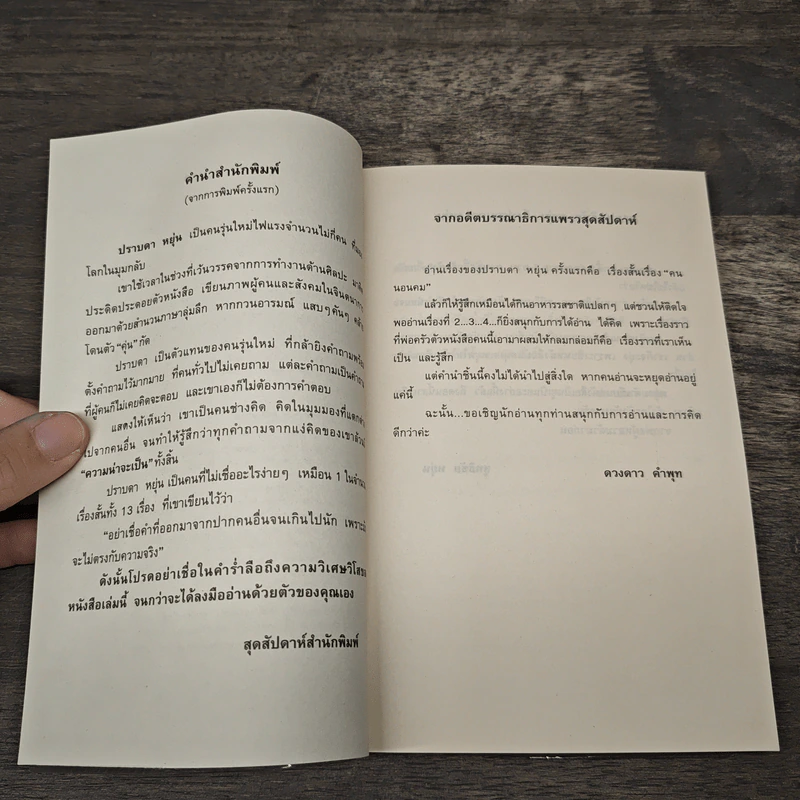 คำนำสำนักพิมพ์
(จากการพิมพ์ครั้งแรก)
ปราบดา หยุ่น เป็นคนรุ่นใหม่ไฟแรงจำนวนไม่กี่คน ที่
โลกในมุมกลับ
เขาใช้เวลาในช่วงที่เว้นวรรคจากการทำงานด้านศิลปะ
ประดิดประดอยตัวหนังสือ เขียนภาพผู้คนและสังคมในจินตนาการ
ออกมาด้วยสำนวนภาษาลุ่มลึก หากกวนอารมณ์ แสบๆคันๆ
โดนตัว “คุ่น” กัด
ปราบดา เป็นตัวแทนของคนรุ่นใหม่ ที่กล้ายิงคำถาม
ตั้งคำถามไว้มากมาย ที่คนทั่วไปไม่เคยถาม แต่ละคำถามเป็น
ที่ผู้คนก็ไม่เคยคิดจะตอบ และเขาเองก็ไม่ต้องการคำตอบ
แสดงให้เห็นว่า เขาเป็นคนช่างคิด คิดในมุมมองที่
ไปจากคนอื่น จนทำให้รู้สึกว่าทุกคำถามจากแง่คิดของเขา
“ความน่าจะเป็น” ทั้งสิ้น
ปราบดา หยุ่น เป็นคนที่ไม่เชื่ออะไรง่ายๆ เหมือน 1 ใน
เรื่องสั้นทั้ง 13 เรื่อง ที่เขาเขียนไว้ว่า
“อย่าเชื่อคำที่ออกมาจากปากคนอื่นจนเกินไปนัก เพราะ
จะไม่ตรงกับความจริง”
ดังนั้นโปรดอย่าเชื่อในคำร่ำลือถึงความวิเศษวิโส
หนังสือเล่มนี้ จนกว่าจะได้ลงมืออ่านด้วยตัวของคุณเอง
สุดสัปดาห์สำนักพิมพ์
จากอดีตบรรณาธิการแพรวสุดสัปดาห์
อ่านเรื่องของปราบดา หยุ่น ครั้งแรกคือ เรื่องสั้นเรื่อง “คน
นอนคม”
แล้วก็ให้รู้สึกเหมือนได้กินอาหารรสชาติแปลกๆ แต่ชวนให้ติดใจ
พออ่านเรื่องที่ 2...3...4...ก็ยิ่งสนุกกับการได้อ่าน ได้คิด เพราะเรื่องราว
ที่พ่อครัวตัวหนังสือคนนี้เอามาผสมให้กลมกล่อมก็คือ เรื่องราวที่เราเห็น
เป็น และรู้สึก
แต่คำนำชิ้นนี้คงไม่ได้นำไปสู่สิ่งใด หากคนอ่านจะหยุดอ่านอยู่
แค่นี้
ฉะนั้น...ขอเชิญนักอ่านทุกท่านสนุกกับการอ่านและการคิด
ดีกว่าค่ะ
ดวงดาว คำพุท